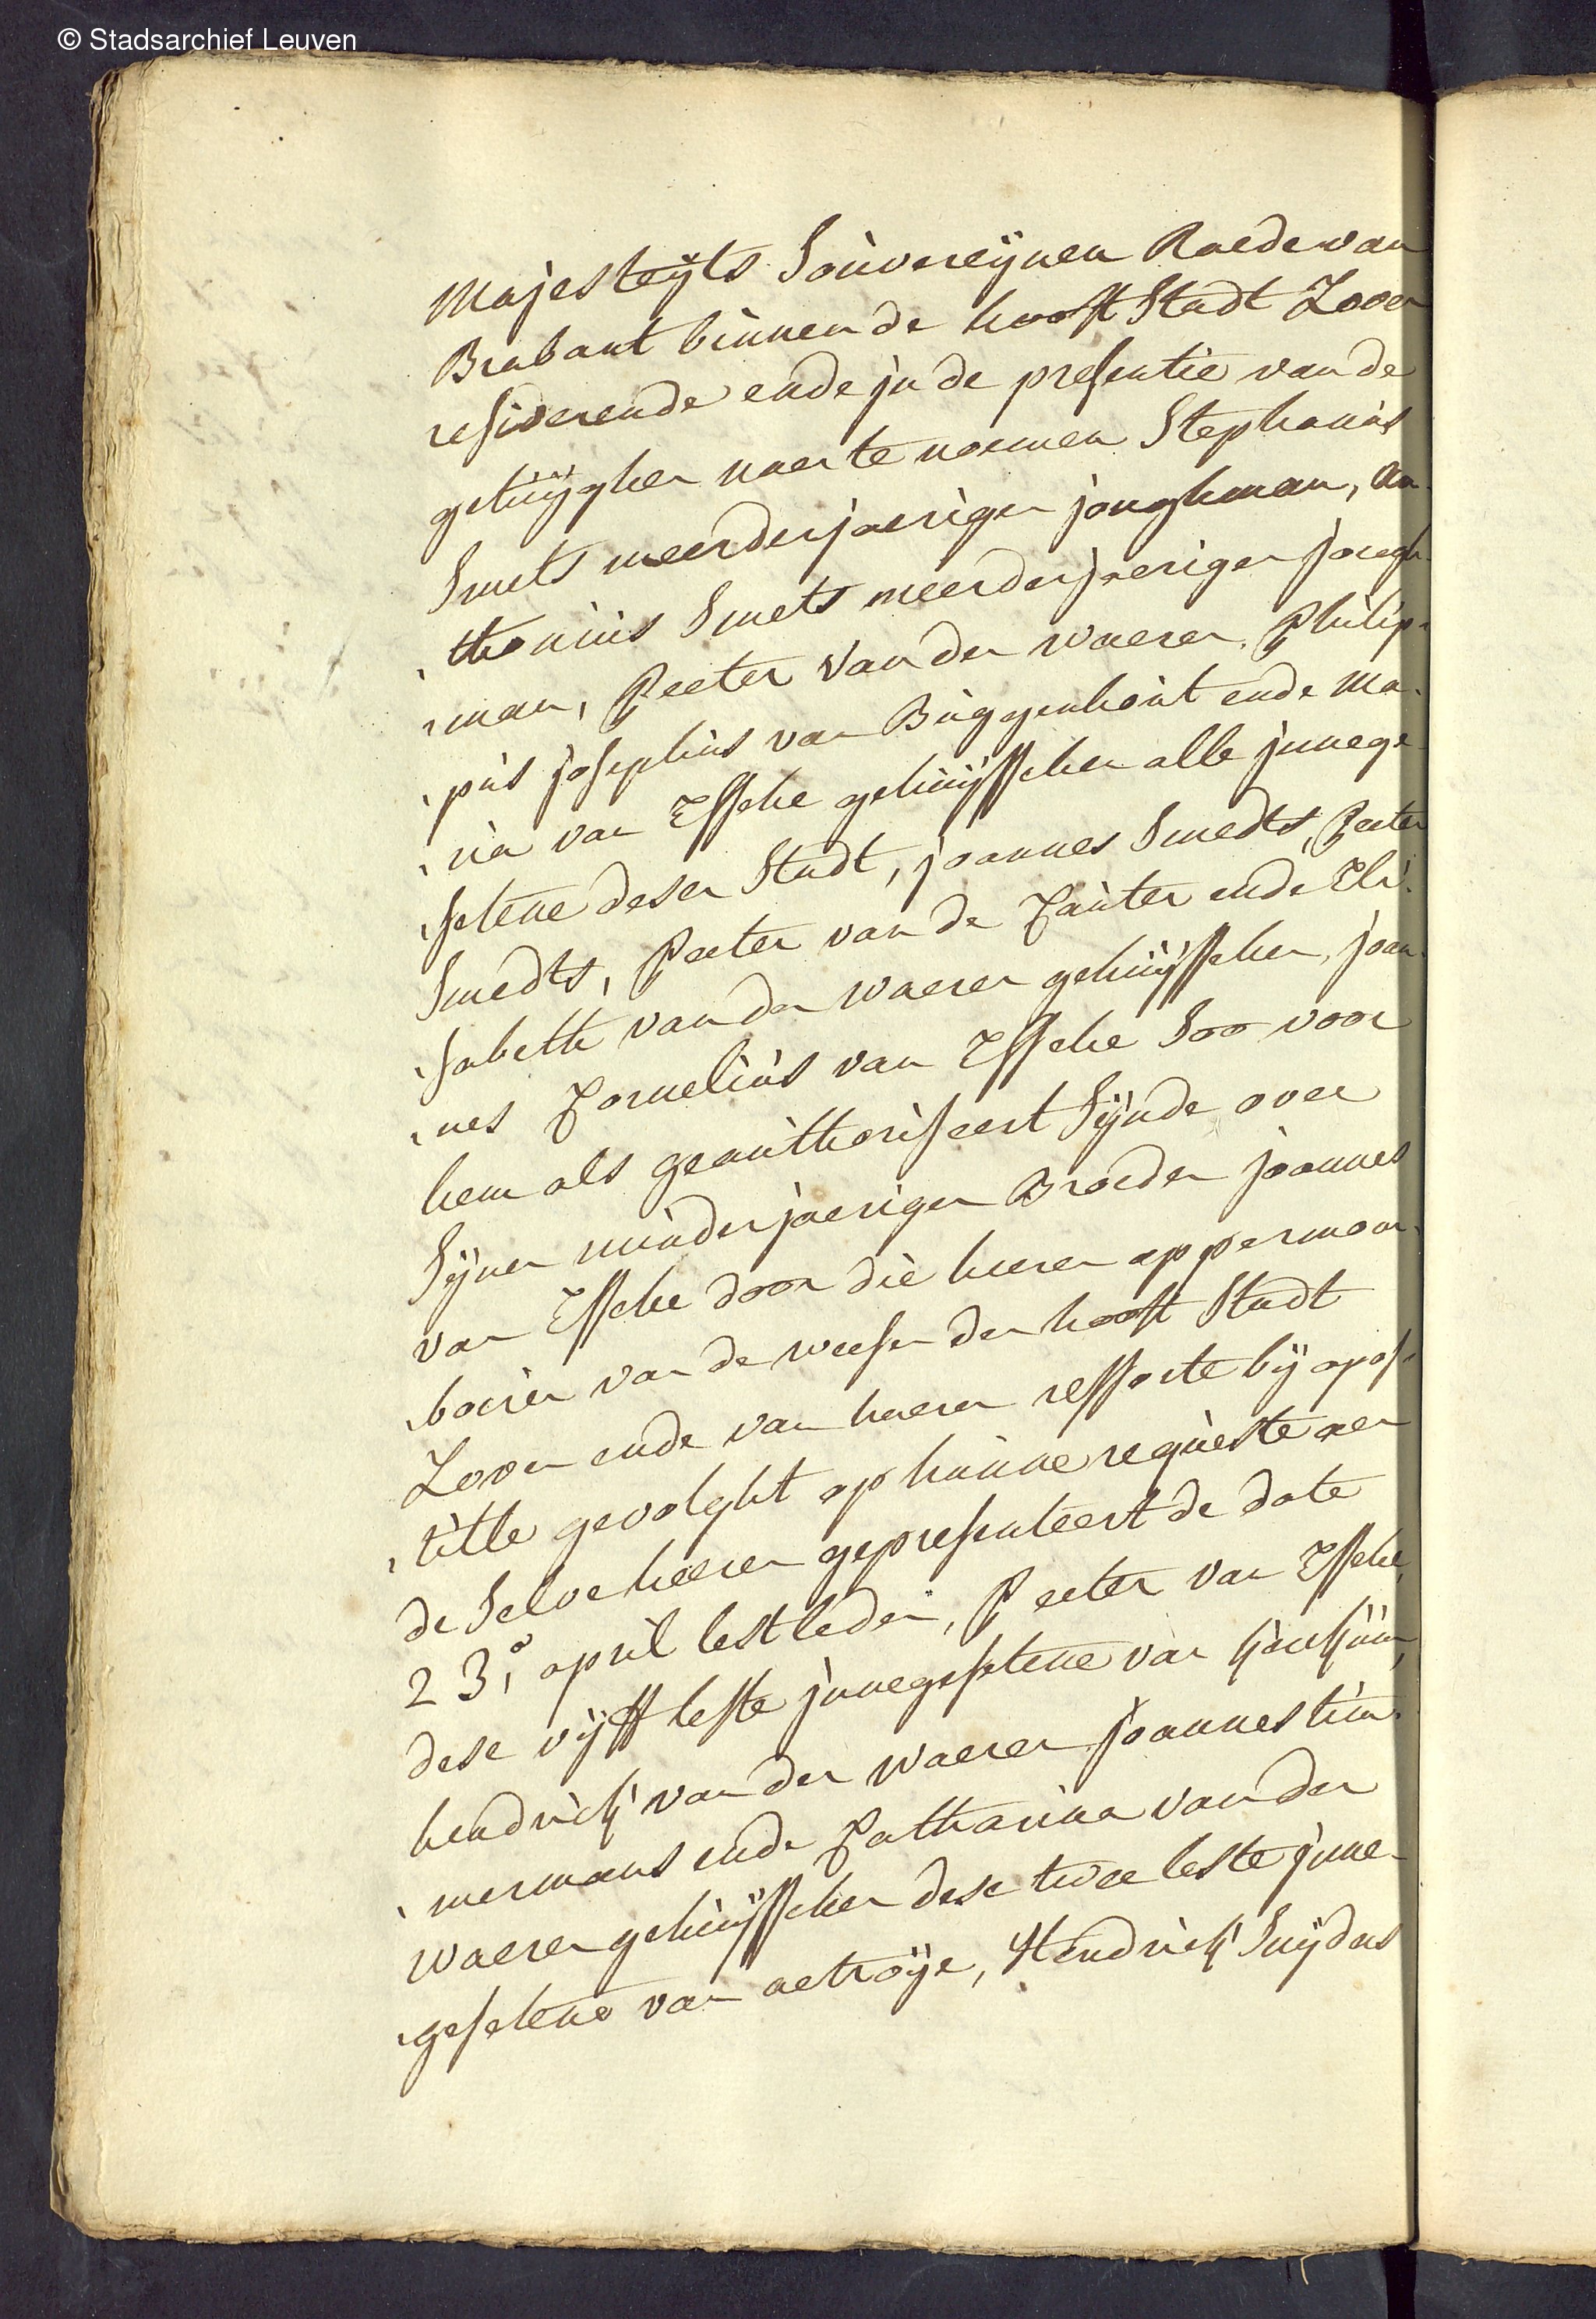 © Stadsarchief Leuven
Majesteÿts Souvereÿnen Raede van
Brabant binnen de hooft Stadt Loven
residerende ende in de presentie van de
getuÿghen naer te noemen Stephanus
Smets meerderjaerigen jonghman, An-
thonius Smets meerderjaerigen jongh-
man, Peeter van der Waeren, Philip-
pus josephus van Buggenhout ende Ma-
ria van Essche gehuÿsschen alle innege-
setene deser Stadt, joannes Smedts, Peeter
Smedts, Peeter van de Cauter ende Eli-
sabeth van der Waeren gehuÿsschen, joan-
nes Cornelius van Essche Soo voor
hem als geauthoriseert Sÿnde over
Sÿnen minderjaerigen Broeder joannes
van Essche door die heeren oppermom-
boiren van de weesen der hooft Stadt
Loven ende van haeren ressorte bÿ apos-
tille gevolght op hunne requeste aen
de Selve heeren gepresenteert de date
23.° april lestleden, Peeter van Essche,
dese vÿff leste innegesetene van
hendrick van der Waeren joannes tim-
mermans ende Catharina van der
Waeren gehuÿsschen dese twee leste inne-
gesetene van aetroÿe, Hendrick Snÿders